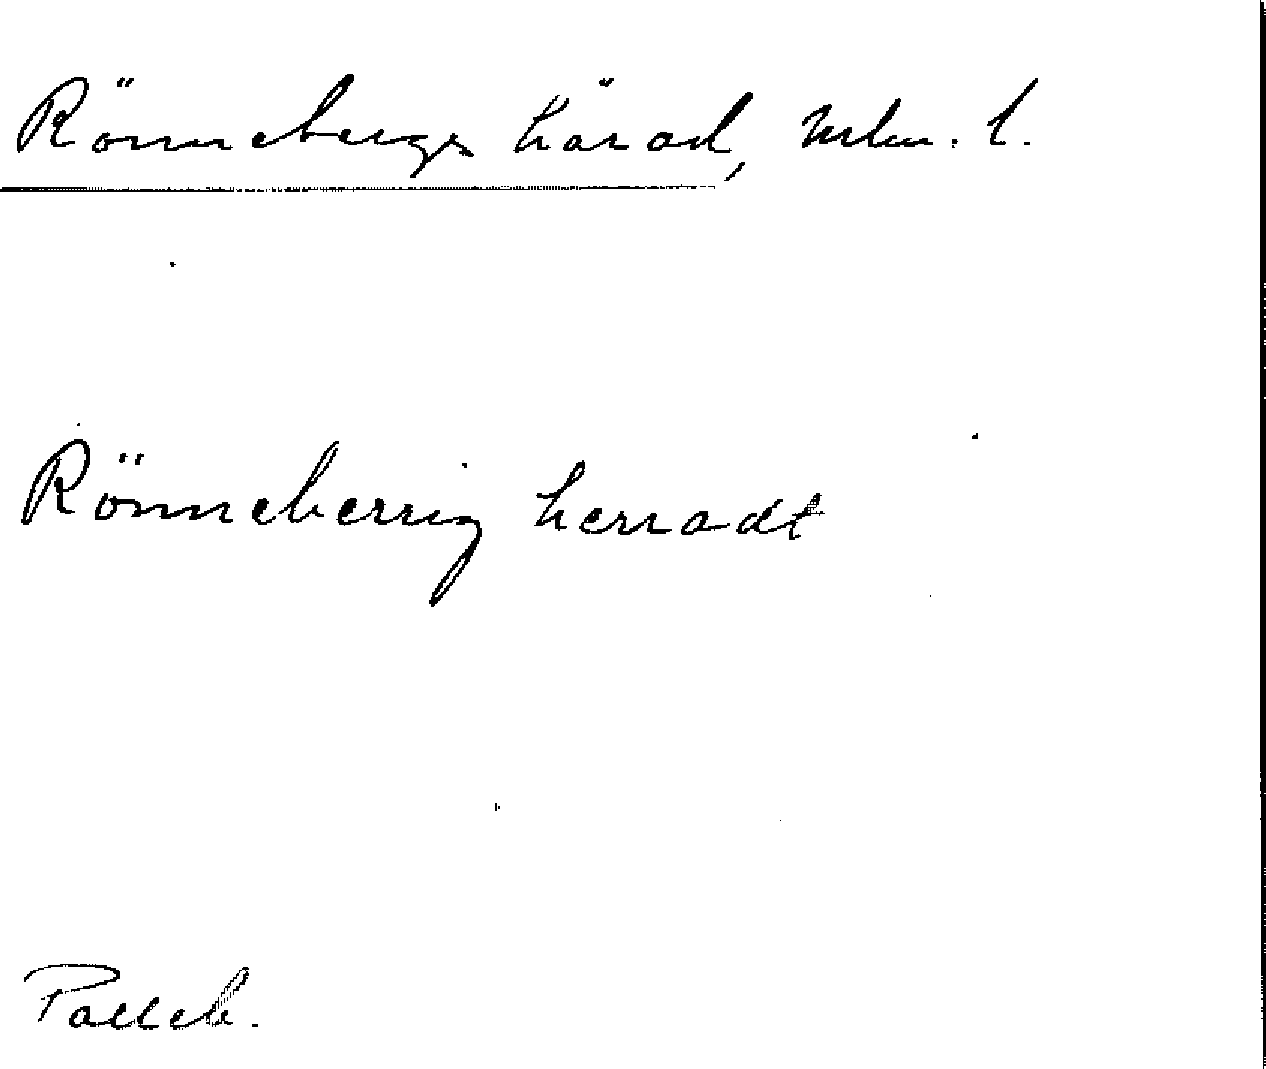 Rönnebergs härad, Mlm. l.
Rönneberrig herradt
Palteb.